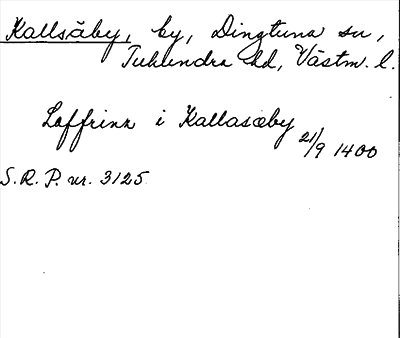 Kallsäby, by, Dingtuna sn,
Tuhundra hd, Västm. l.
Laffrinn i Kallasæby
21/9 1400
S.R.P. nr. 3125